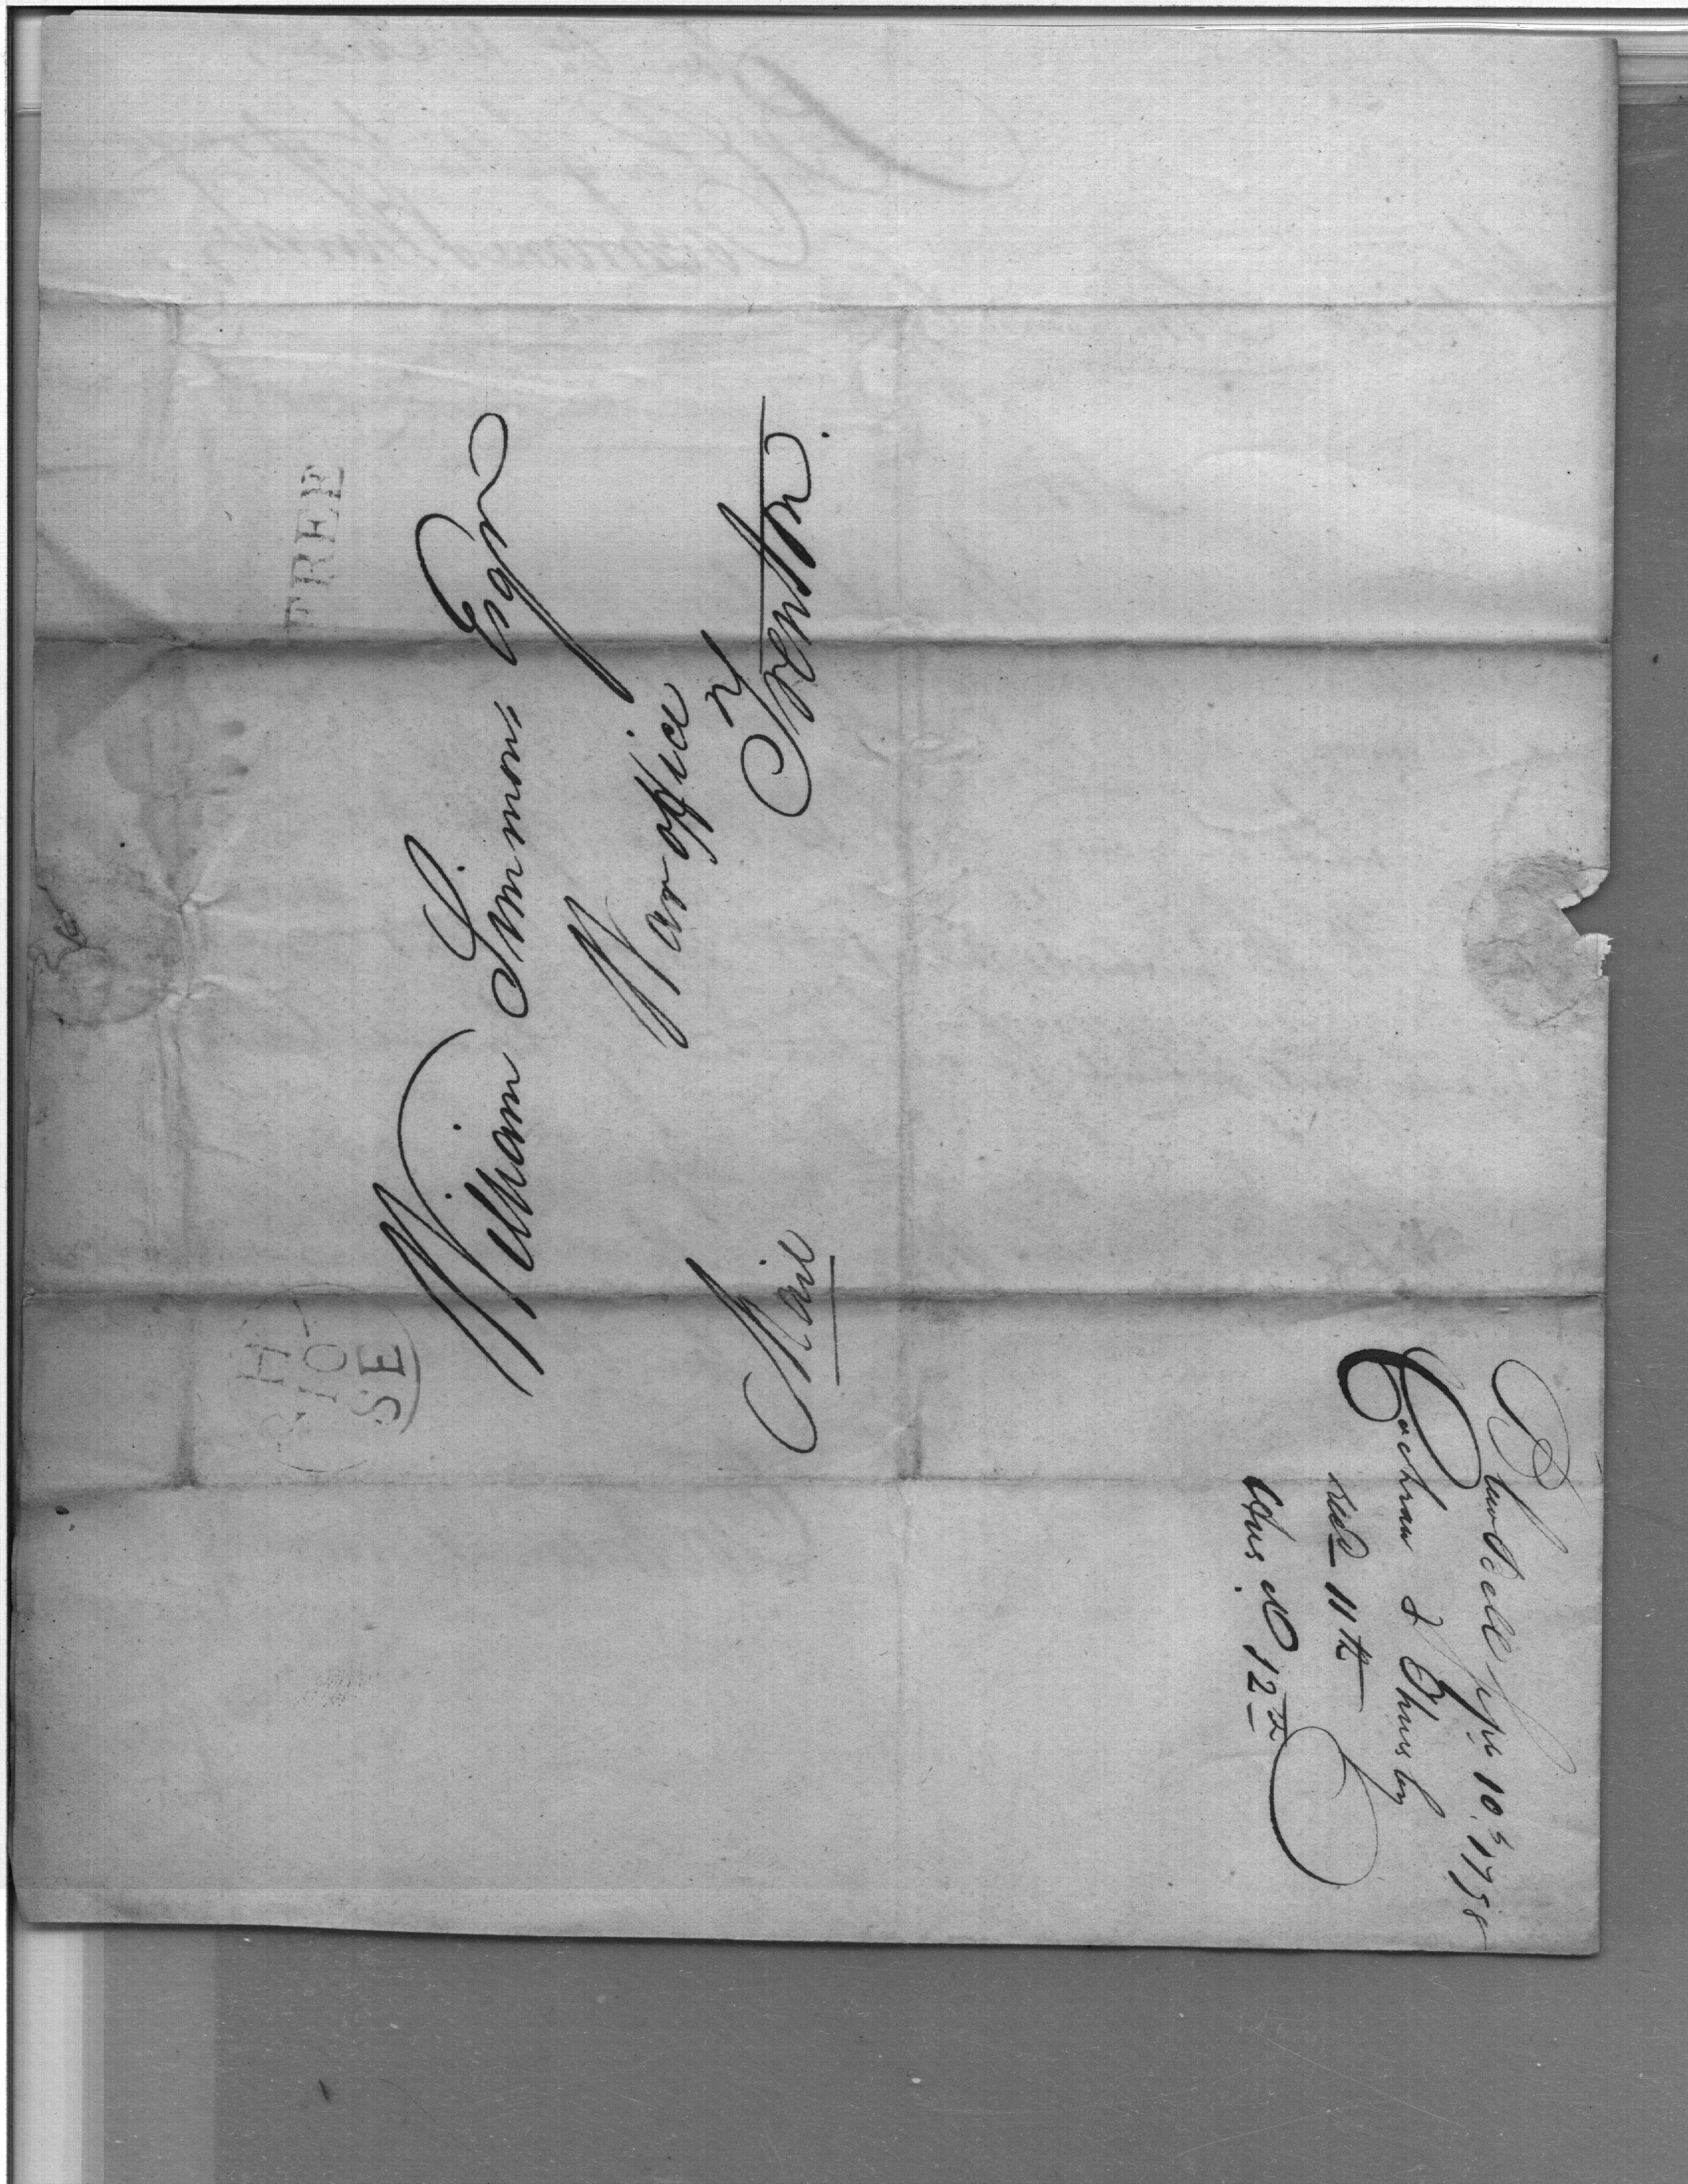 FREE
PH
10
SE
William Simmons Esqr
War office
Trenton
Mail
10th 1798
Cochran & Thursby
recd 11th
ansd 12th